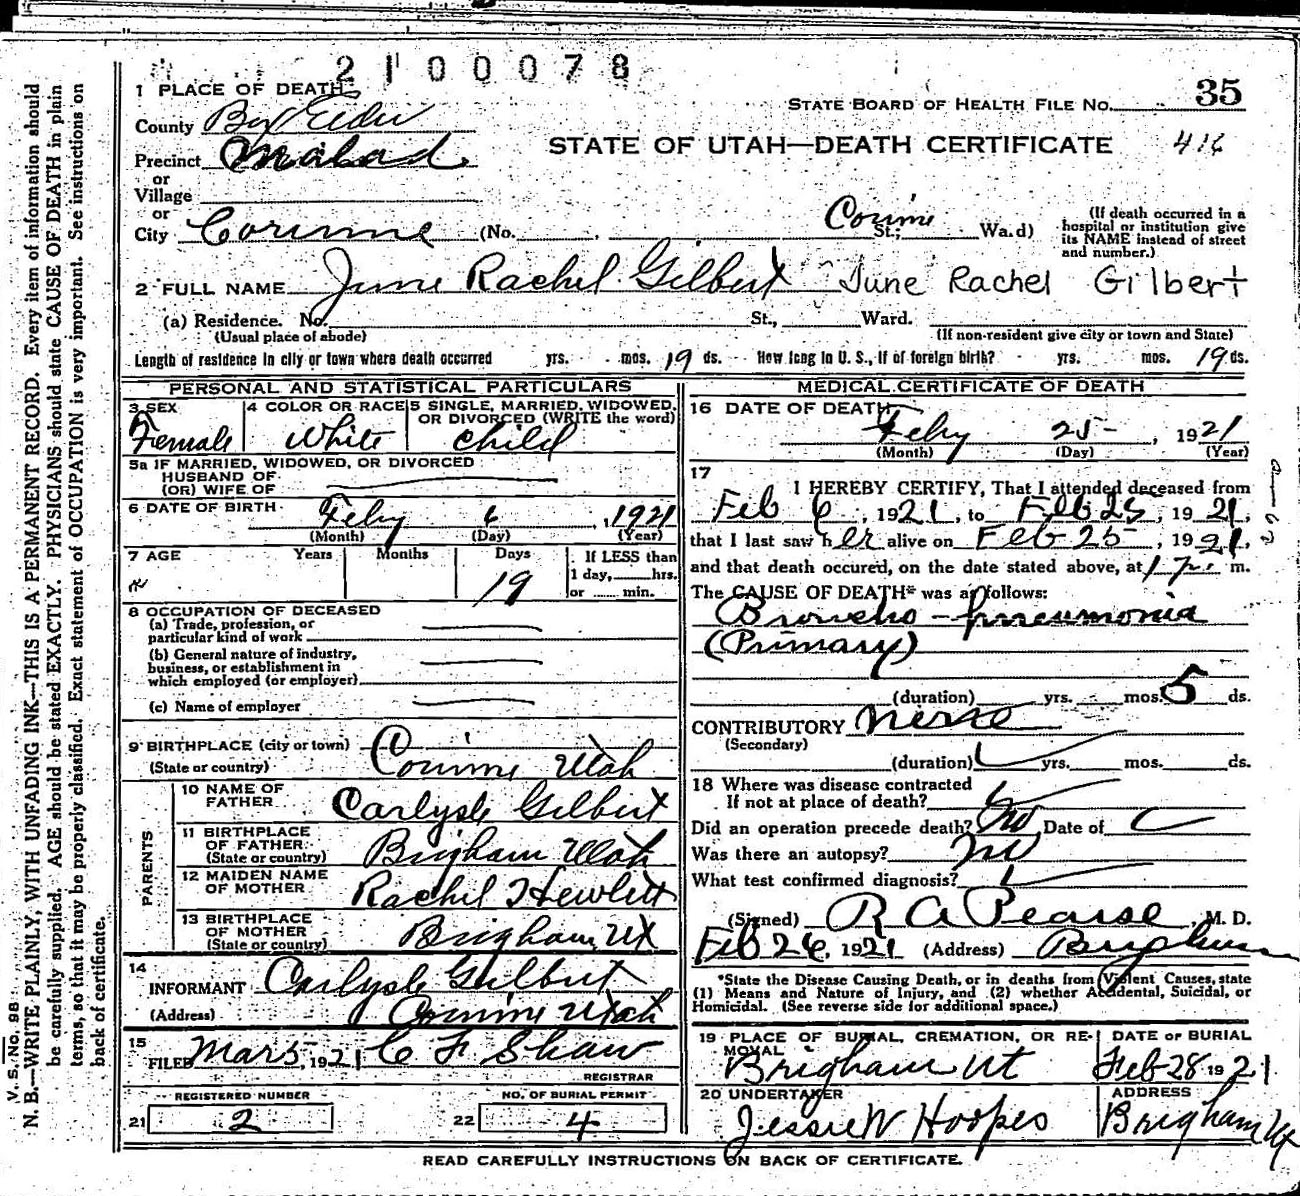 2100078
1 PLACE OF DEATH
STATE BOARD OF HEALTH FILE No. 35
County Box Elder
STATE OF UTAH—DEATH CERTIFICATE 416
Precinct Malad
or
Village
or
City Corinne (No. , Corinne St.; Ward)
(If death occurred in a hospital or institution give its NAME instead of street and number.)
2 FULL NAME June Rachel Gilbert June Rachel Gilbert
(a) Residence. No. St., Ward.
(Usual place of abode) (If non-resident give city or town and State)
Length of residence in city or town where death occurred yrs. mos. 19 ds. How long in U. S., if of foreign birth? yrs. mos. 19 ds.
PERSONAL AND STATISTICAL PARTICULARS
3 SEX 4 COLOR OR RACE 5 SINGLE, MARRIED, WIDOWED, OR DIVORCED (WRITE the word)
Female White Child
5a IF MARRIED, WIDOWED, OR DIVORCED
HUSBAND OF
(OR) WIFE OF
6 DATE OF BIRTH Feby 6, 1921
(Month) (Day) (Year)
7 AGE Years Months Days If LESS than
19 1 day, hrs.
or min.
8 OCCUPATION OF DECEASED
(a) Trade, profession, or
particular kind of work
(b) General nature of industry,
business, or establishment in
which employed (or employer)
(c) Name of employer
9 BIRTHPLACE (city or town)
(State or country) Corinne Utah
PARENTS
10 NAME OF
FATHER Carlysle Gilbert
11 BIRTHPLACE
OF FATHER
(State or country) Brigham Utah
12 MAIDEN NAME
OF MOTHER Rachel Hewlett
13 BIRTHPLACE
OF MOTHER
(State or country) Brigham, Ut
14
INFORMANT Carlysle Gilbert
(Address) Corinne Utah
15
FILED Mar 5, 1921 C F Shaw
REGISTRAR
REGISTERED NUMBER NO. OF BURIAL PERMIT
21 2 22 4
MEDICAL CERTIFICATE OF DEATH
16 DATE OF DEATH
Feby 25, 1921
(Month) (Day) (Year)
17
I HEREBY CERTIFY, That I attended deceased from
Feb 6, 1921, to Feb 25, 1921,
that I last saw her alive on Feb 25, 1921,
and that death occured, on the date stated above, at 1 p. m.
The CAUSE OF DEATH* was as follows:
Broncho-pneumonia
(Primary)
(duration) yrs. mos. 5 ds.
CONTRIBUTORY None
(Secondary)
(duration) yrs. mos. ds.
18 Where was disease contracted
If not at place of death?
Did an operation precede death? No Date of
Was there an autopsy? No
What test confirmed diagnosis?
(Signed) R A Pearse, M. D.
Feb 26, 1921 (Address) Brigham
*State the Disease Causing Death, or in deaths from Violent Causes, state
(1) Means and Nature of Injury, and (2) whether Accidental, Suicidal, or
Homicidal. (See reverse side for additional space.)
19 PLACE OF BURIAL, CREMATION, OR RE- DATE OF BURIAL
MOVAL
Brigham Ut Feb 28 1921
20 UNDERTAKER ADDRESS
Jessie W Hoopes Brigham Ut
READ CAREFULLY INSTRUCTIONS ON BACK OF CERTIFICATE.
V. S. No. 88
N. B.—WRITE PLAINLY, WITH UNFADING INK—THIS IS A PERMANENT RECORD. Every item of information should
be carefully supplied. AGE should be stated EXACTLY. PHYSICIANS should state CAUSE OF DEATH in plain
terms, so that it may be properly classified. Exact statement of OCCUPATION is very important. See instructions on
back of certificate.